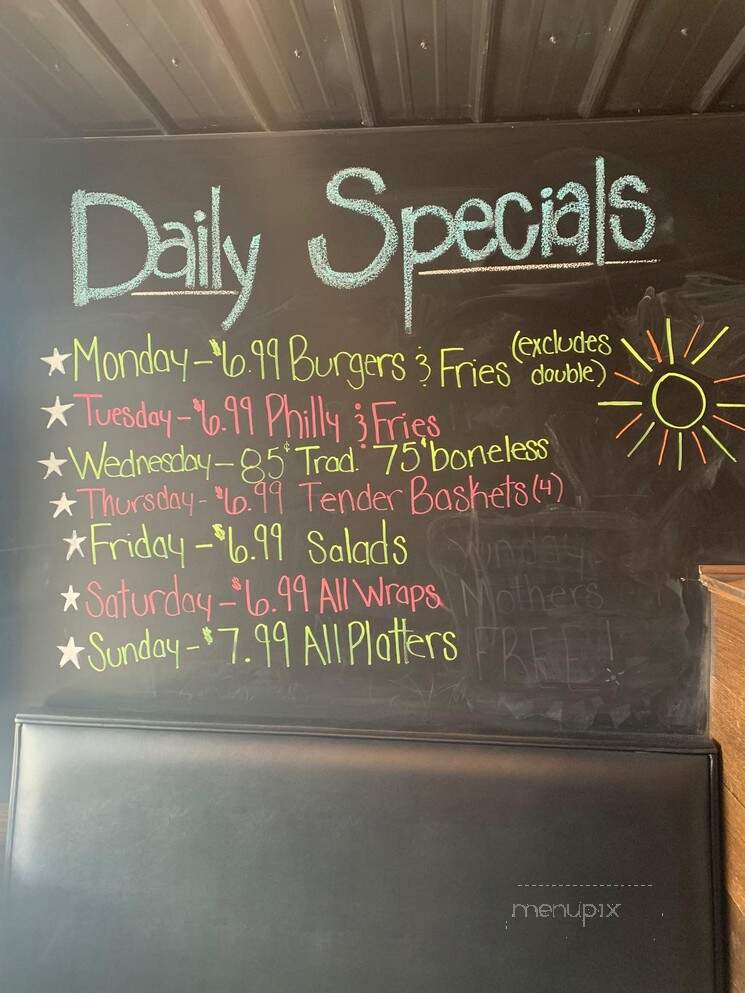 Daily Specials
Monday - $6.99 Burgers & Fries (excludes double)
Tuesday - $6.99 Philly & Fries
Wednesday - 85¢ Trad. 75¢ boneless
Thursday - $6.99 Tender Baskets (4)
Friday - $6.99 Salads
Saturday - $6.99 All Wraps
Sunday - $7.99 All Platters
Sunday
Mothers
FREE!
menupix